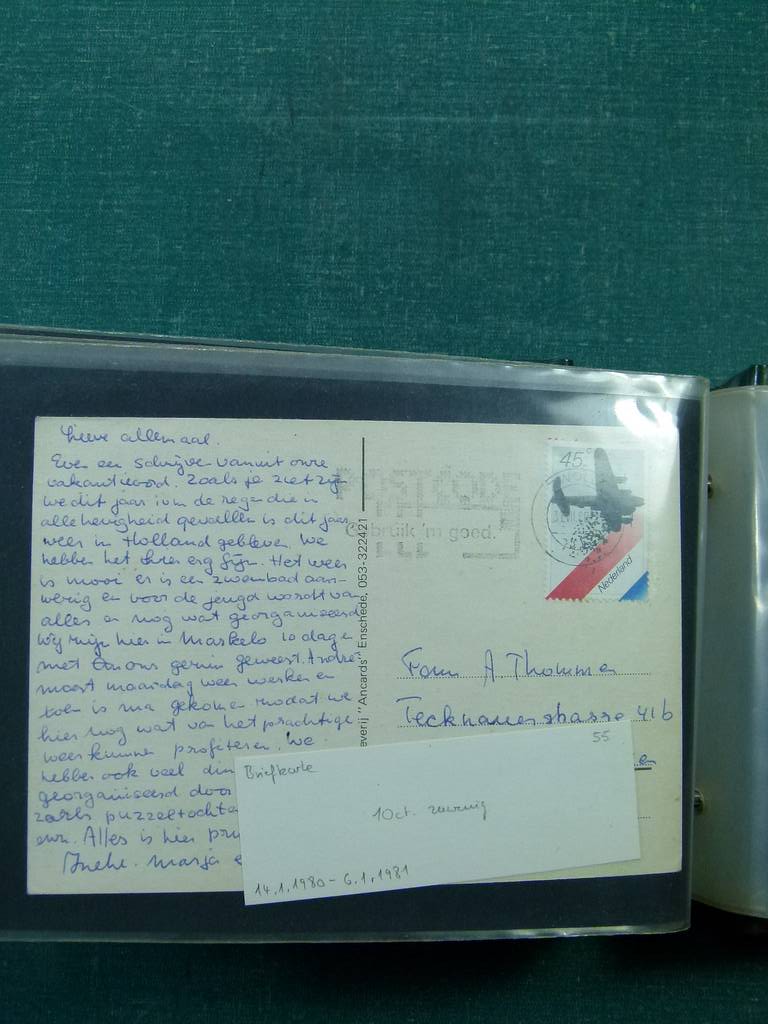 Lieve allemaal.
Even een schrijven vanuit onze
vakantieoord. Zoals je ziet zijn
we dit jaar in de regen die in
alle hevigheid gevallen is dit jaar
weer in Holland gebleven. We
hebben het hier erg fijn. Het weer
is mooi er is een zwembad aan-
wezig en voor de jeugd wordt van
alles en nog wat georganiseerd
Wij zijn hier in Markelo 10 dagen
met ons gezin geweest. André
moest maandag weer werken en
toen is ma gekomen zodat we
hier nog wat van het prachtige
weer kunnen profiteren. We
hebben ook veel din
georganiseerd door
zoals puzzeltochte
enz. Alles is hier pri
Ineke. Marja e
everij "Ancards" Enschede, 053-322421
POSTCODE
Gebruik 'm goed.
45 c
Nederland
Fam A Thommen
Tecknauerstrasse 41b
en
Briefkarte
55
10ct. zuwenig
14.1.1980 - 6.1.1981